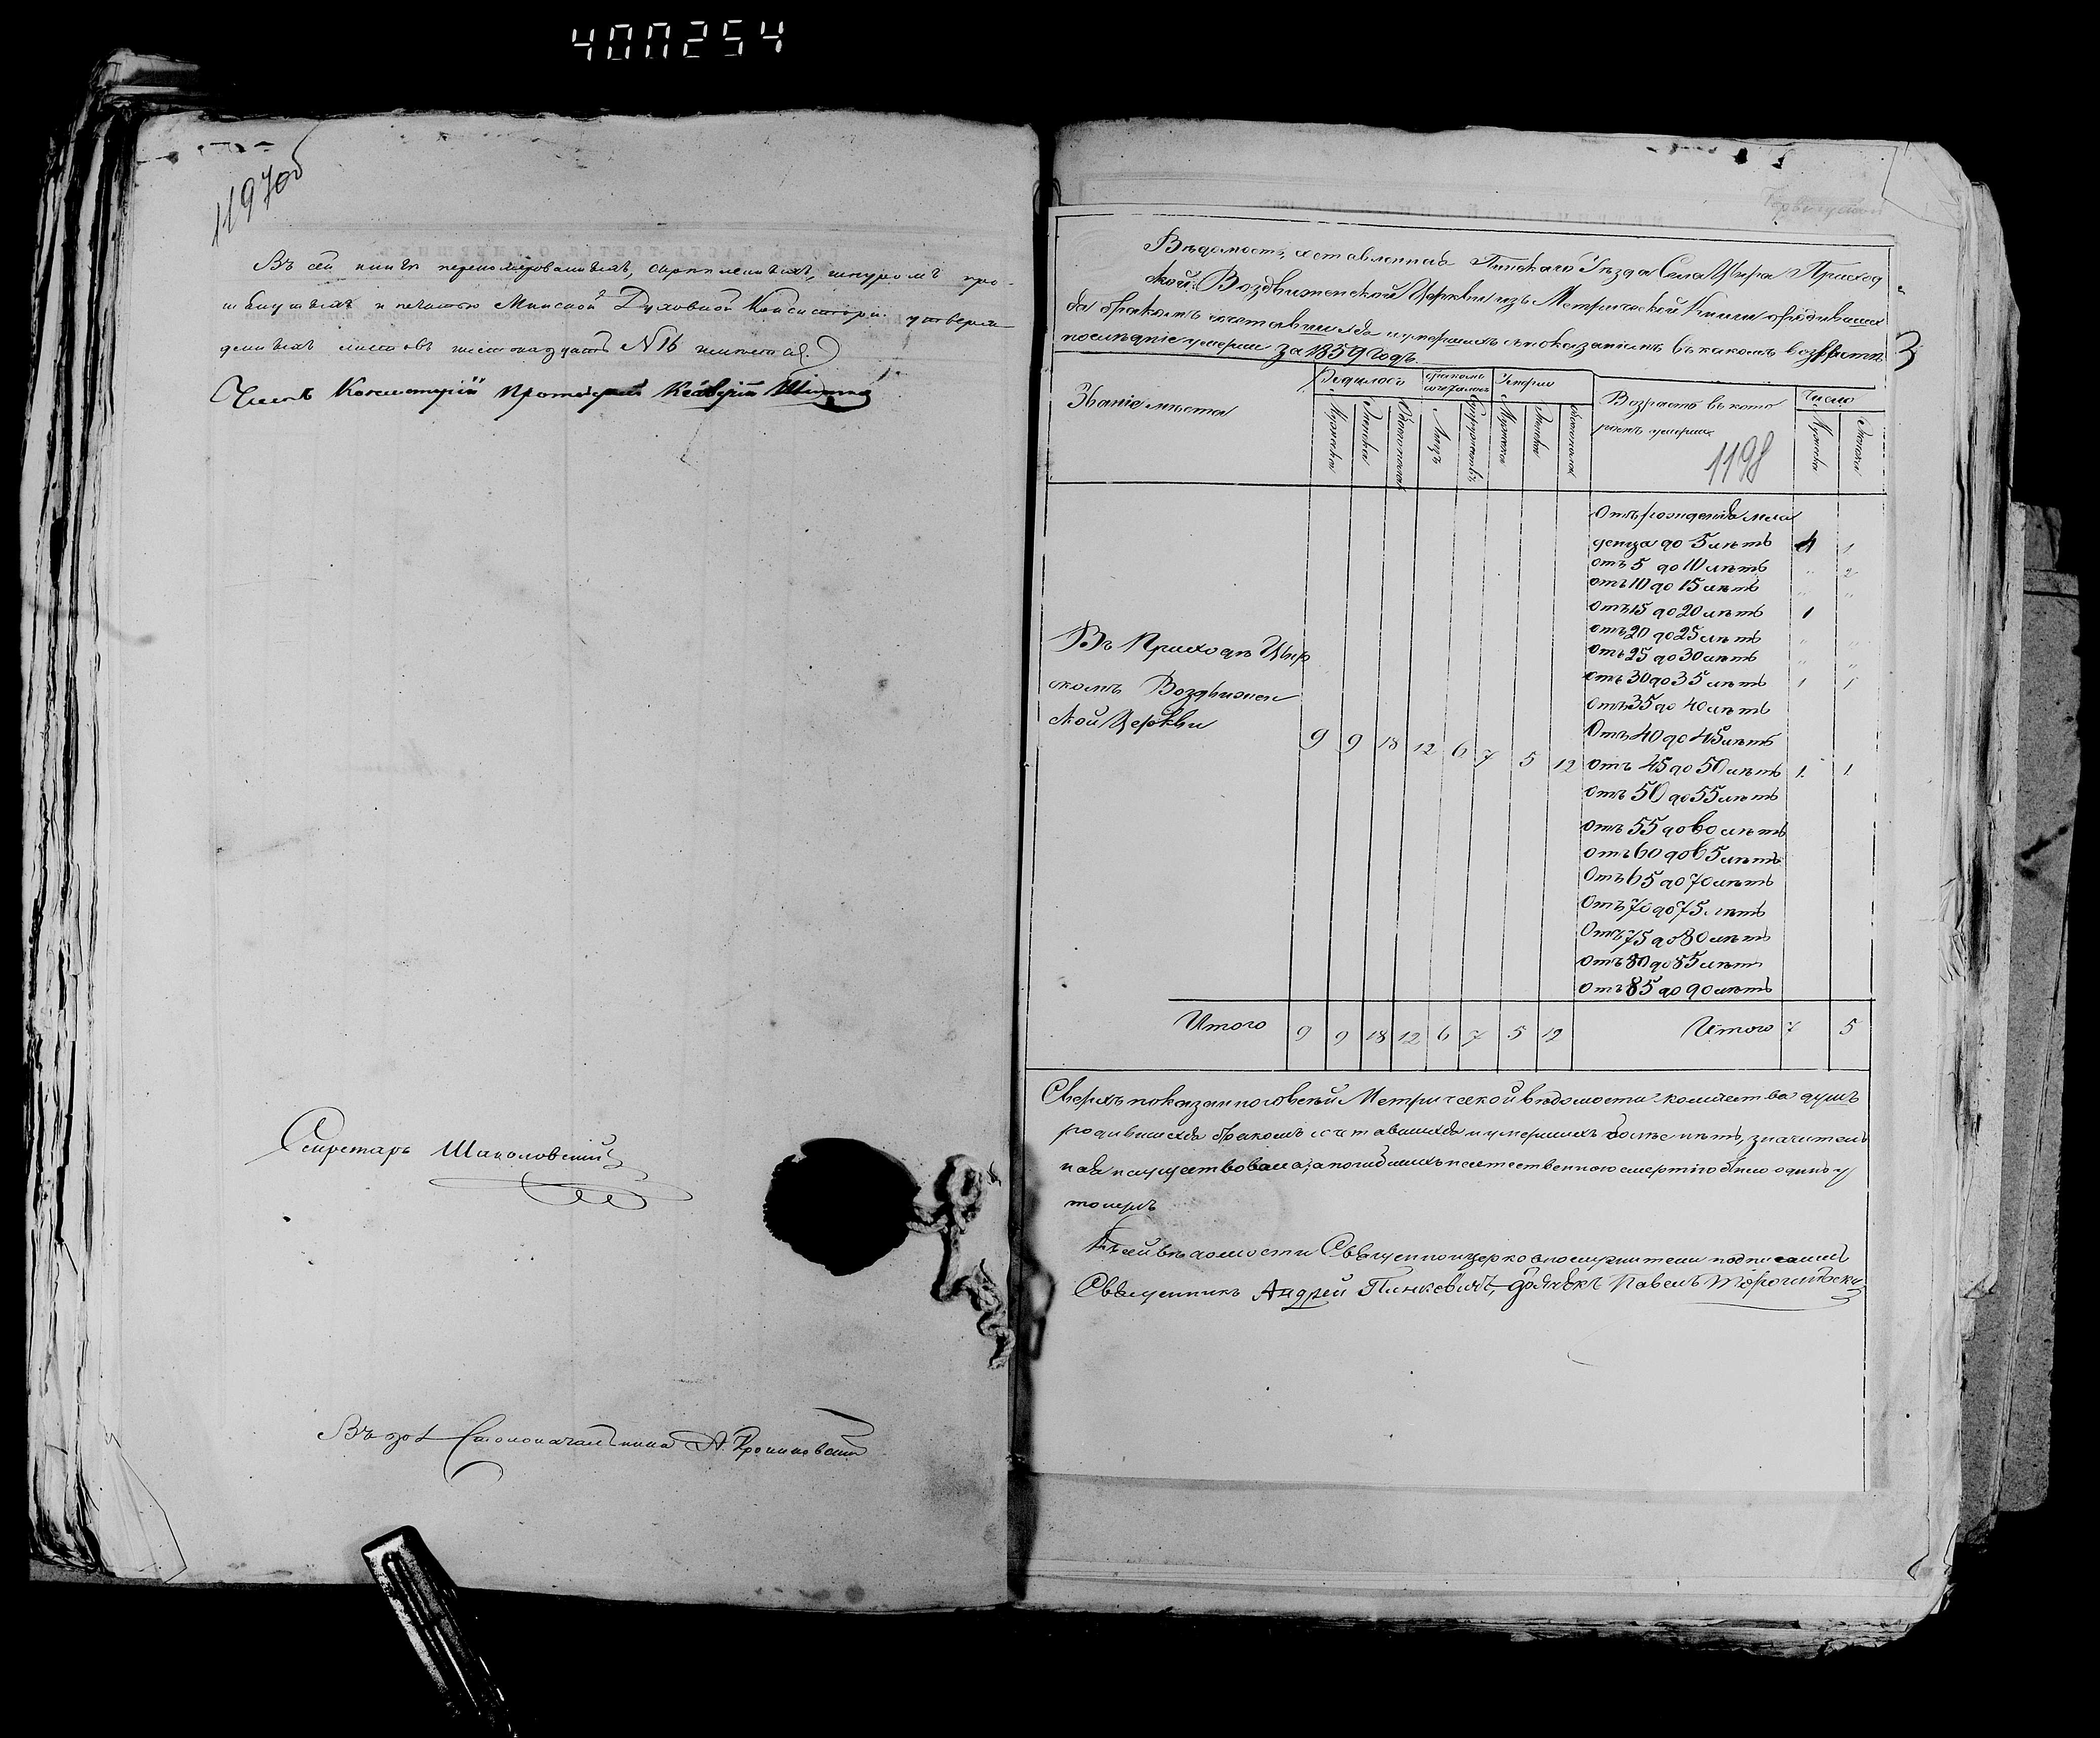 400254
1197об
Въ сей книгѣ перенумерованныхъ, скрѣпленныхъ, шнуромъ про-
шнутыхъ и печатью Минской Духовной Консисторіи утверж-
денныхъ листовъ шестнадцать N 16 имѣется.
Членъ Консисторіи Протоіерей
Секретарь
Въ дол. Столоначальника А.
Вѣдомость, составленная Пинскаго Уѣзда Села Цыра Приход
ской Воздвиженской Церкви изъ Метрической Книги о родивших
ся бракомъ сочетавшихся и умершихъ съ показаніемъ въ какомъ возрастѣ
послѣдніе умерли за 1859 годъ
3
Званіе мѣста
Родилось
бракомъ сочеталось
Умерло
Возрастъ въ кото
ромъ умерли
Число
Мужеска
Женска
Обоего пола
Лицъ
Супружествъ
Мужеска
Женска
Обоего пола
Мужеска
Женска
1198
Отъ рожденія мла
денца до 5 лѣтъ 4 1
отъ 5 до 10 лѣтъ " 2
отъ 10 до 15 лѣтъ " "
отъ 15 до 20 лѣтъ 1
отъ 20 до 25 лѣтъ " "
отъ 25 до 30 лѣтъ " "
отъ 30 до 35 лѣтъ 1 1
отъ 35 до 40 лѣтъ
Отъ 40 до 45 лѣтъ
отъ 45 до 50 лѣтъ 1 1
отъ 50 до 55 лѣтъ
отъ 55 до 60 лѣтъ
отъ 60 до 65 лѣтъ
Отъ 65 до 70 лѣтъ
Отъ 70 до 75 лѣтъ
Отъ 75 до 80 лѣтъ
отъ 80 до 85 лѣтъ
отъ 85 до 90 лѣтъ
Въ Приходѣ Цыр
скомъ Воздвижен
ской Церкви 9 9 18 12 6 7 5 12
Итого 9 9 18 12 6 7 5 12 Итого 7 5
Сверхъ показаннаго въ сей Метрической вѣдомости количества душъ
родившихся бракомъ сочетавшихся и умершихъ болѣе нѣтъ,
а погибшихъ неестественною смертію было одинъ у
топъ
Къ сей вѣдомости Священноцерковнослужители подписались
Священникъ Андрей Пинкевичъ, дьячекъ Павелъ